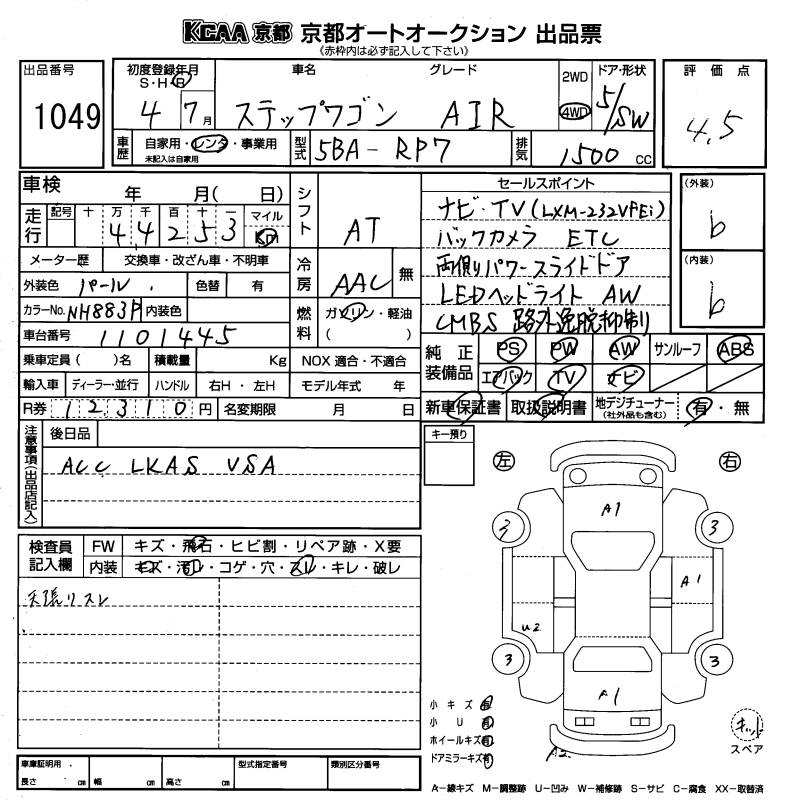 KCAA 京都 京都オートオークション 出品票
《赤枠内は必ず記入して下さい》
出品番号 1049
初度登録年月 S・H・R 4 7月
車名 グレード ステップワゴン AIR
2WD 4WD
ドア・形状 5/SW
評価点 4.5
車歴 自家用・レンタ・事業用 未記入は自家用
型式 5BA-RP7
排気 1500 cc
車検 年 月( 日)
シフト AT
セールスポイント
ナビ・TV(LXM-232VFEi)
バックカメラ ETC
両側パワースライドドア
LEDヘッドライト AW
CMBS 路外逸脱抑制
(外装) b
(内装) b
走行 記号 十 万 千 百 十 一 マイル Km
44253
メーター歴 交換車・改ざん車・不明車
冷房 AAC 無
外装色 パール 色替 有
カラーNo. NH883P 内装色
燃料 ガソリン・軽油 ( )
車台番号 1101445
乗車定員( )名 積載量 Kg NOX 適合・不適合
輸入車 ディーラー・並行 ハンドル 右H・左H モデル年式 年
R券 12310円 名変期限 月 日
純正装備品 PS PW AW サンルーフ ABS
エアバック TV ナビ
新車保証書 取扱説明書 地デジチューナー(社外品も含む) 有・無
注意事項(出品店記入) 後日品
ACC LKAS VSA
キー預り
左 右
検査員記入欄 FW キズ・飛石・ヒビ割・リペア跡・X要
内装 キズ・汚レ・コゲ・穴・スレ・キレ・破レ
天張リスレ
A1
3 3
A1
U2
3 3
A1
A2
小キズ 有
小U 有
ホイールキズ 有
ドアミラーキズ 有
キット
スペア
車庫証明用 長さ cm 幅 cm 高さ cm 型式指定番号 類別区分番号
A-線キズ M-調整跡 U-凹み W-補修跡 S-サビ C-腐食 XX-取替済